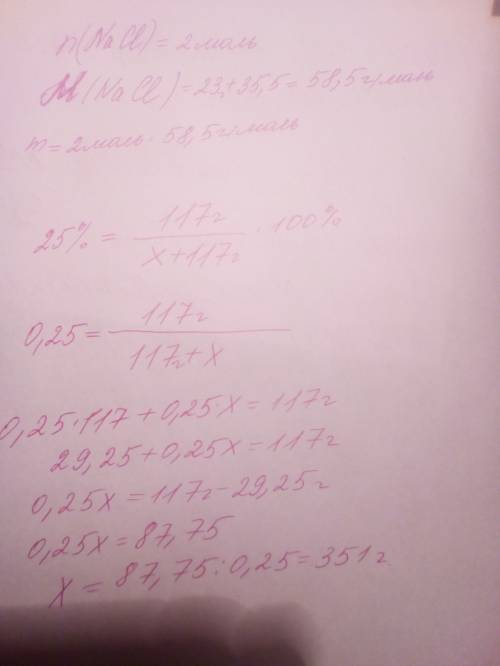 n(NaCl)=2моль
M(NaCl)=23+35,5=58,5г/моль
m=2моль·58,5г/моль
25% = 117г / x+117г · 100%
0,25 = 117г / 117г+x
0,25·117+0,25·x=117г
29,25+0,25x=117г
0,25x=117г-29,25г
0,25x=87,75
x=87,75:0,25=351г